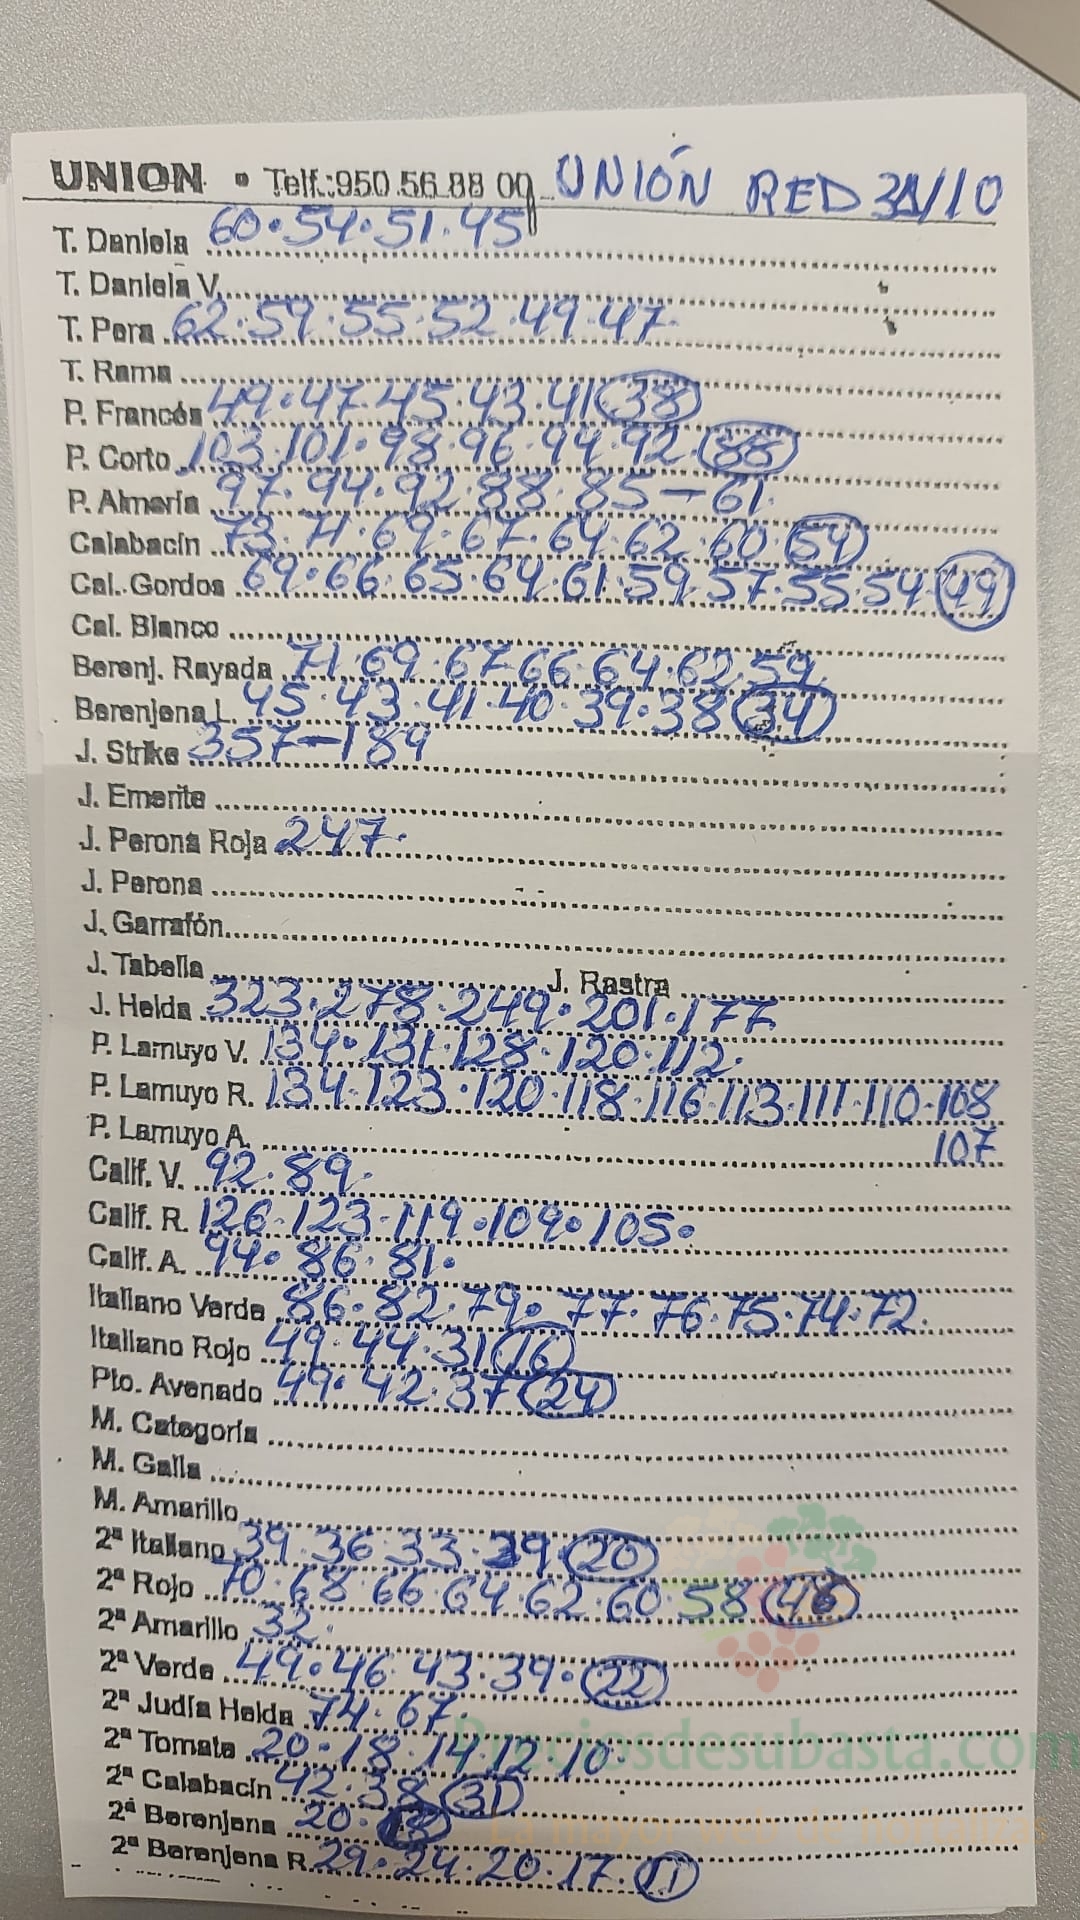 UNION • Telf.:950.56.88 00 UNIÓN RED 31/10
T. Daniela 60.54.51.45
T. Daniela V.
T. Pera 62.59.55.52.49.47.
T. Rama
P. Francés 49.47.45.43.41 38
P. Corto 103.101.98.96.94.92.88
P. Almería 97.94.92.88.85-61.
Calabacín 73.71.69.67.64.62.60.54
Cal. Gordos 69.66.65.64.61.59.57.55.54.49
Cal. Blanco
Berenj. Rayada 71.69.67.66.64.62.59
Berenjena L. 45.43.41.40.39.38 34
J. Strike 357-189
J. Emerite
J. Perona Roja 247.
J. Perona
J. Garrafón
J. Tabella J. Rastra
J. Helda 323.278.249.201.177
P. Lamuyo V. 134.131.128.120.112.
P. Lamuyo R. 134.123.120.118.116.113.111.110.108
P. Lamuyo A. 107
Calif. V. 92.89.
Calif. R. 126.123.119.109.105.
Calif. A. 94.86.81.
Italiano Verde 86.82.79.77.76.75.74.72.
Italiano Rojo 49.44.31 16
Pto. Avenado 49.42.37 24
M. Categoría
M. Galia
M. Amarillo
2ª Italiano 39.36.33.29.20
2ª Rojo 70.68.66.64.62.60.58 46
2ª Amarillo 32.
2ª Verde 49.46.43.39.22
2ª Judía Helda 74.67.
2ª Tomate 20.18.14.12.10.
2ª Calabacín 42.38 31
2ª Berenjena 20.
2ª Berenjena R. 29.24.20.17.11
Preciosdesubasta.com
La mayor web de hortalizas